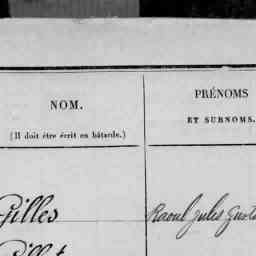 NOM.
(Il doit être écrit en bâtarde.)
PRÉNOMS
ET SURNOMS.
Gilles
Raoul Jules